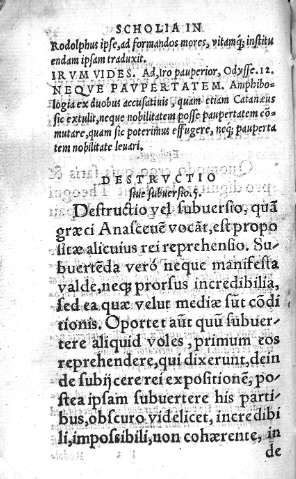 SCHOLIA IN
Rodolphus ipse, ad formandos mores, vitamq́; institu
endam ipsam traduxit.
IRVM VIDES. Ad, Iro pauperior, Odysse. 12.
NEQVE PAVPERTATEM. Amphibo-
logia ex duobus accusatiuis, quam etiam Catanæus
sic extulit, neque nobilitatem posse paupertatem cō-
mutare, quam sic poterimus effugere, neq; pauperta
tem nobilitate leuari.
DESTRVCTIO
siue subuersio. 5.
Destructio vel subuersio, quā
græci Anasceuẽ vocāt, est propo
sitæ alicuius rei reprehensio. Su-
buertẽda verò neque manifesta
valde, neq; prorsus incredibilia,
sed ea quæ velut mediæ sūt cōdi
tionis. Oportet aūt quū subuer-
tere aliquid voles, primum eos
reprehendere, qui dixerunt, dein
de subijcere rei expositionẽ, po-
stea ipsam subuertere his parti-
bus, obscuro videlicet, incredibi
li, impossibili, non cohærente, in
de